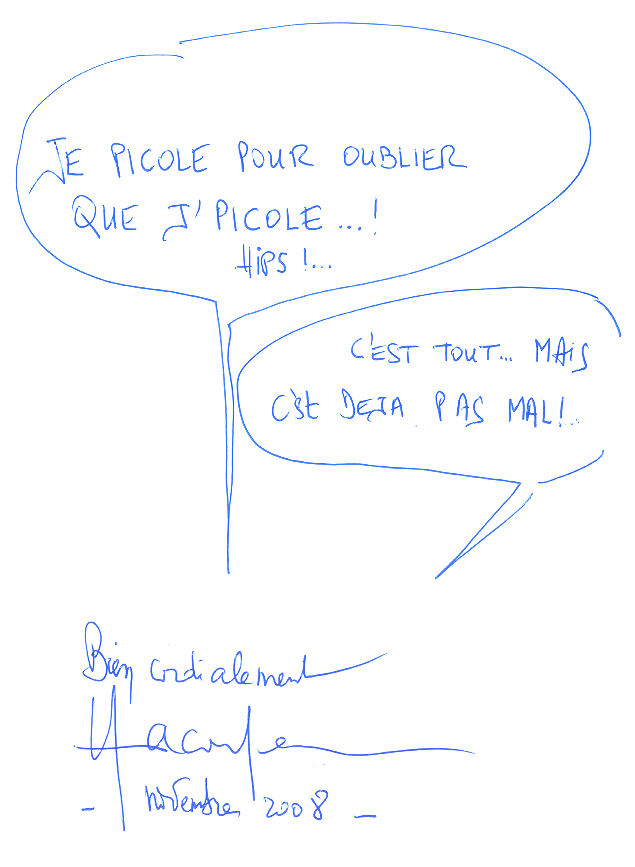 JE PICOLE POUR OUBLIER
QUE J'PICOLE...!
HIPS !...
C'EST TOUT... MAIS
C'ST DEJA PAS MAL!..
Bien cordialement
- novembre 2008 -